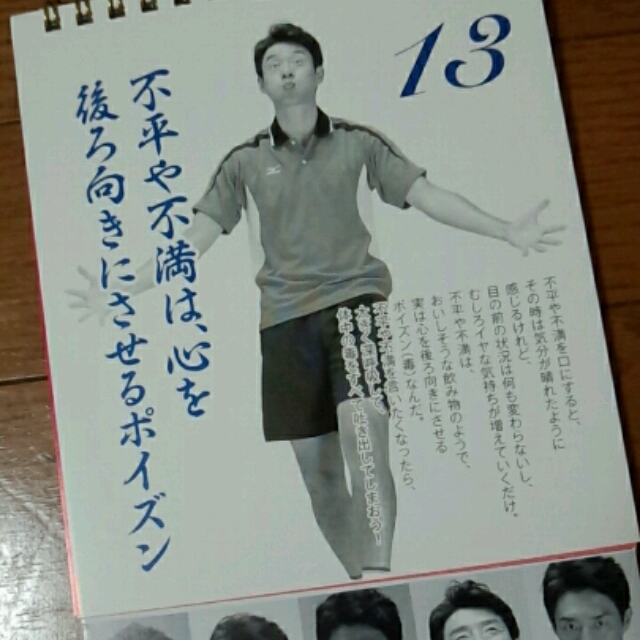 13
不平や不満は、心を
後ろ向きにさせるポイズン
不平や不満を口にすると、
その時は気分が晴れたように
感じるけれど、
目の前の状況は何も変わらないし、
むしろイヤな気持ちが増えていくだけ。
不平や不満は、
おいしそうな飲み物のようで、
実は心を後ろ向きにさせる
ポイズン(毒)なんだ。
言いたくなったら、